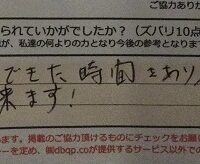 ご協力あり
られていかがでしたか？（ズバリ10点
が、私達の何よりの力となり今後の参考となります
でもた時間をあり
来ます！
ます。掲載のご協力頂けるものにチェックをお願
ーを定め、㈱dbqp.coが提供するサービス以外での